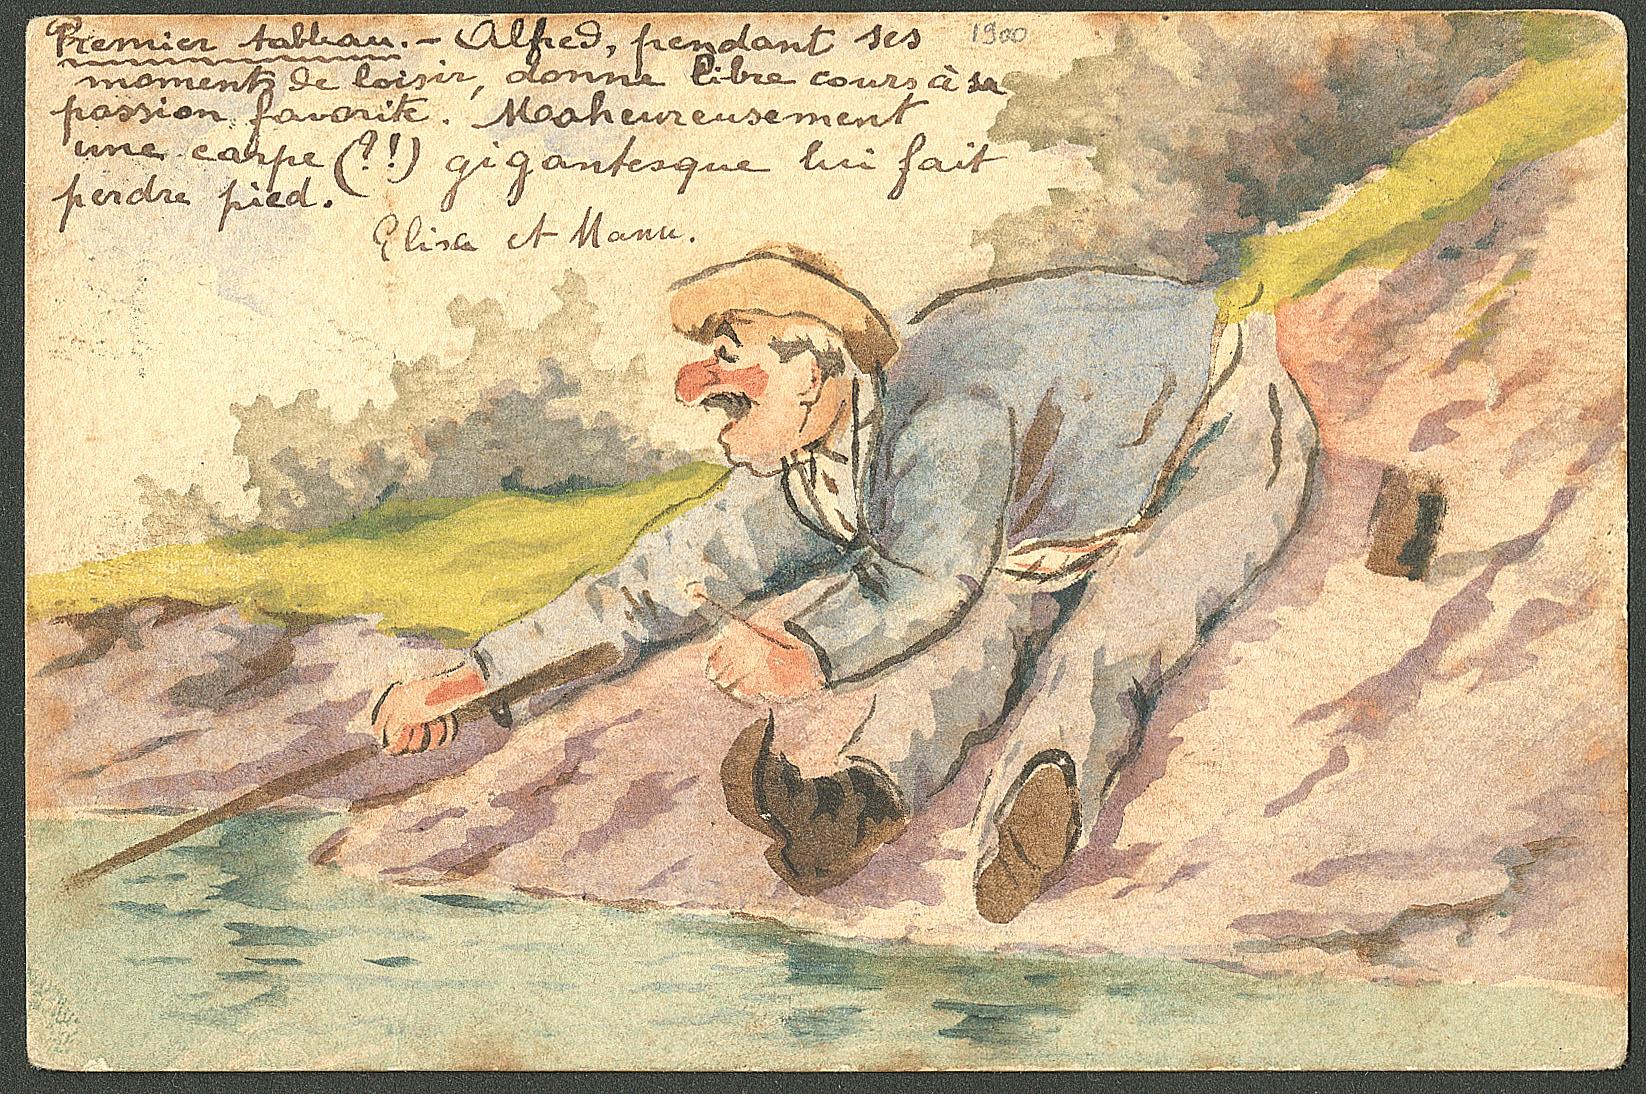 Premier tableau. - Alfred, pendant ses 1900
moments de loisir, donne libre cours à sa
passion favorite. Malheureusement
une carpe (?!) gigantesque lui fait
perdre pied.
Elisa et Manu.